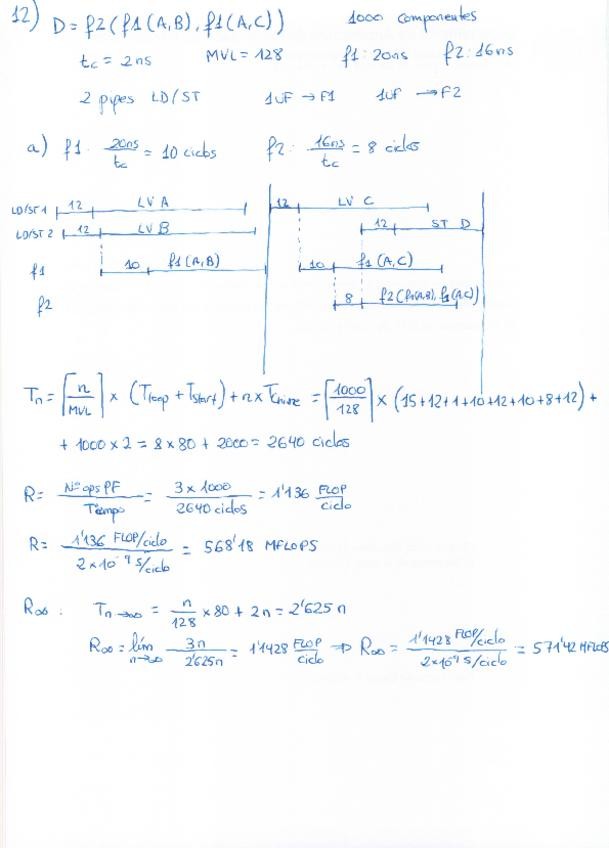 12) D = f2(f1(A,B), f1(A,C)) 1000 componentes
tc = 2ns MVL = 128 f1: 20ns f2: 16ns
2 pipes LD/ST 1UF → F1 1UF → F2
a) f1: 20ns/tc = 10 ciclos f2: 16ns/tc = 8 ciclos
LD/ST 1 12 LV A 12 LV C
12 ST D
LD/ST 2 12 LV B
f1 10 f1(A,B) 10 f1(A,C)
f2 8 f2(f1(A,B), f1(A,C))
Tn = ⌈n/MVL⌉ × (Tloop + Tstart) + n × Tchime = ⌈1000/128⌉ × (15+12+1+10+12+10+8+12) +
+ 1000 × 2 = 8 × 80 + 2000 = 2640 ciclos
R = Nº ops PF/Tiempo = 3 × 1000/2640 ciclos = 1'136 FLOP/ciclo
R = 1'136 FLOP/ciclo / 2×10⁻⁹ s/ciclo = 568'18 MFLOPS
R∞ : Tn→∞ = n/128 × 80 + 2n = 2'625 n
R∞ = lím n→∞ 3n/2'625n = 1'1428 FLOP/ciclo ⇒ R∞ = 1'1428 FLOP/ciclo / 2×10⁻⁹ s/ciclo = 571'42 MFLOPS